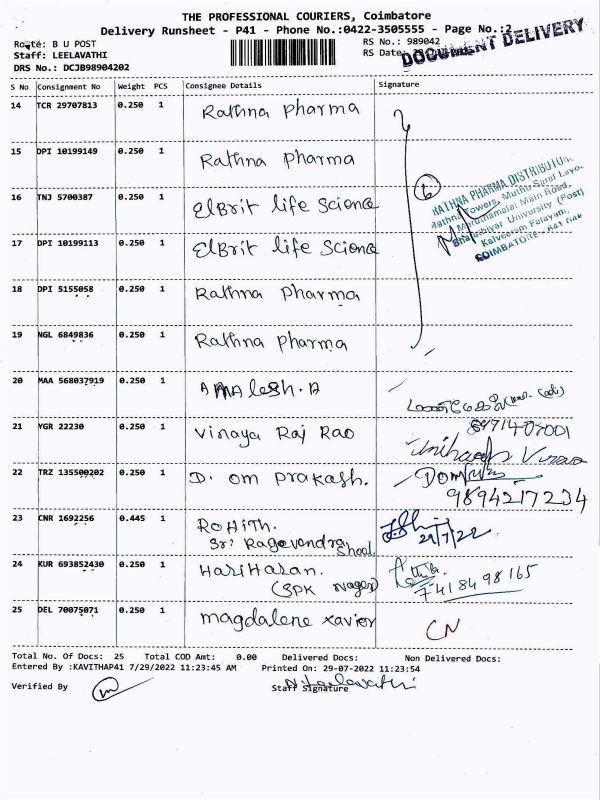 THE PROFESSIONAL COURIERS, Coimbatore
Delivery Runsheet - P41 - Phone No.:0422-3505555 - Page No.:2
DOCUMENT DELIVERY
Route: B U POST
RS No.: 989042
Staff: LEELAVATHI
RS Date:
DRS No.: DCJB98904202
S No Consignment No Weight PCS Consignee Details Signature
14 TCR 29707813 0.250 1 Rathna Pharma
15 DPI 10199149 0.250 1 Rathna Pharma
6
RATHNA PHARMA DISTRIBUTOR
Rathna Towers, Muthu
Maruthamalai Main Road,
Bharathiyar University (Post)
Kalveeram Palayam,
COIMBATORE - 641 046
16 TNJ 5700387 0.250 1 ElBrit life Science
17 DPI 10199113 0.250 1 ElBrit life Science
18 DPI 5155058 0.250 1 Rathna Pharma
19 NGL 6849836 0.250 1 Rathna Pharma
20 MAA 568037919 0.250 1 Amalesh.A
21 YGR 22230 0.250 1 Vinaya Raj Rao
22 TRZ 135500202 0.250 1 D. om Prakash.
9894217234
23 CNR 1692256 0.445 1 ROHITH.
Sri Ragavendra
29/7/22
24 KUR 693852430 0.250 1 HARIHARAN.
(SPK Nager)
7418498165
25 DEL 70075071 0.250 1 magdalene xavier CN
Total No. Of Docs: 25 Total COD Amt: 0.00 Delivered Docs: Non Delivered Docs:
Entered By :KAVITHAP41 7/29/2022 11:23:45 AM Printed On: 29-07-2022 11:23:54
Verified By
Staff Signature